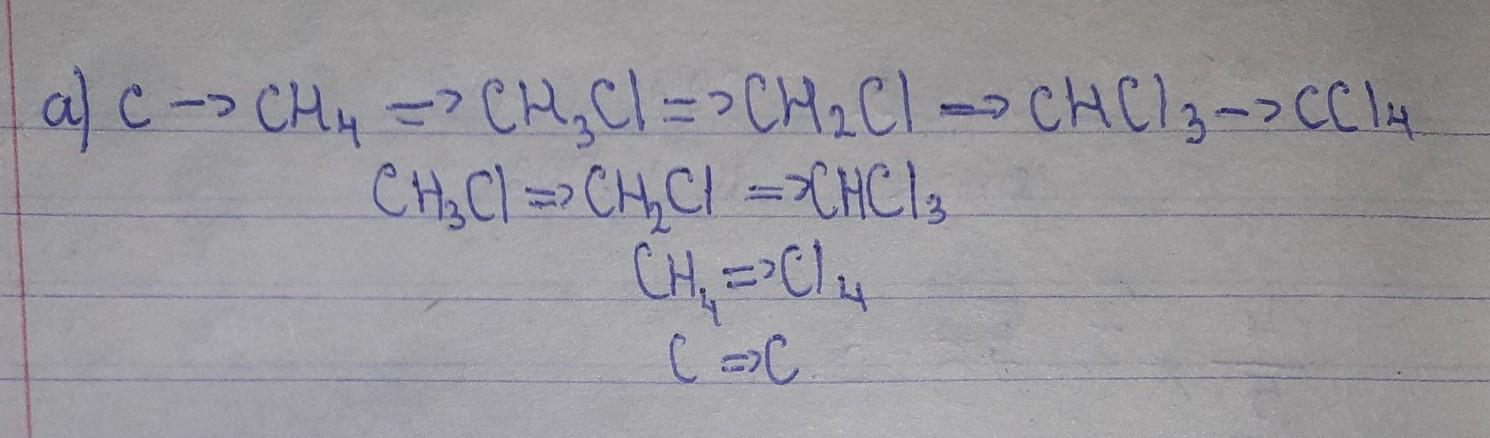 а) C -> CH₄ => CH₃Cl => CH₂Cl => CHCl₃ -> CCl₄
CH₃Cl => CH₂Cl => CHCl₃
CH₄ => Cl₄
C => C